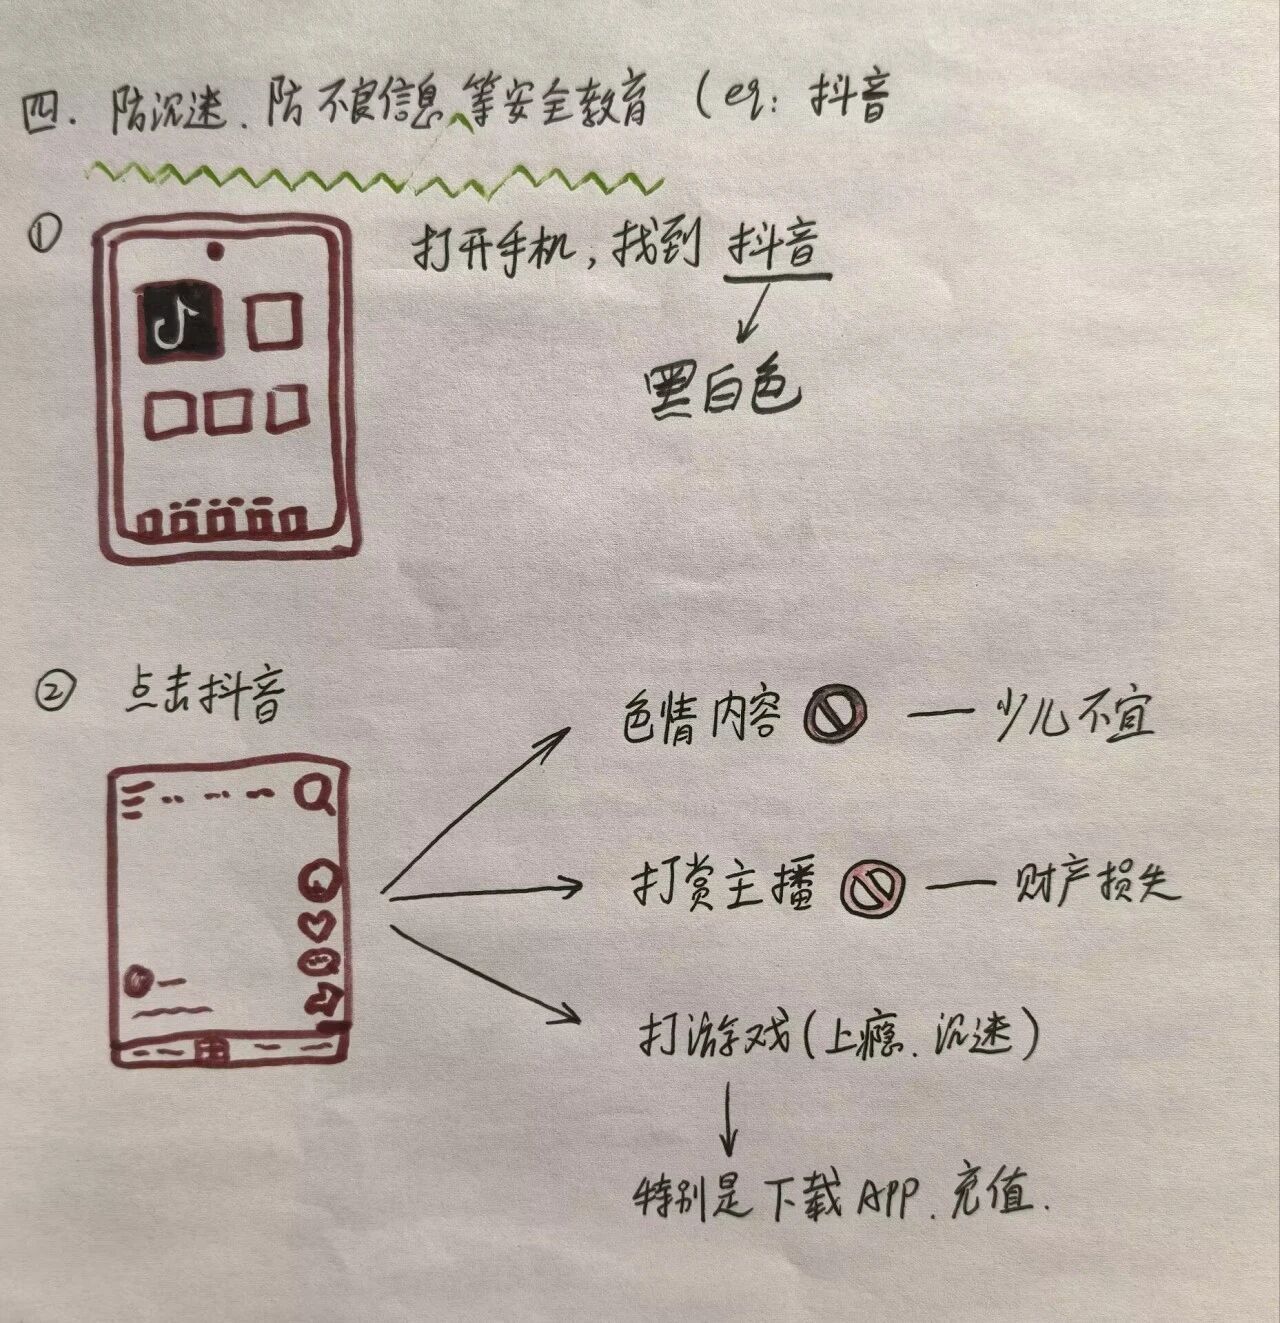 四. 防沉迷、防不良信息等安全教育 (eg: 抖音
① 打开手机, 找到 抖音
黑白色
② 点击抖音
色情内容 — 少儿不宜
打赏主播 — 财产损失
打游戏(上瘾、沉迷)
特别是下载APP、充值.